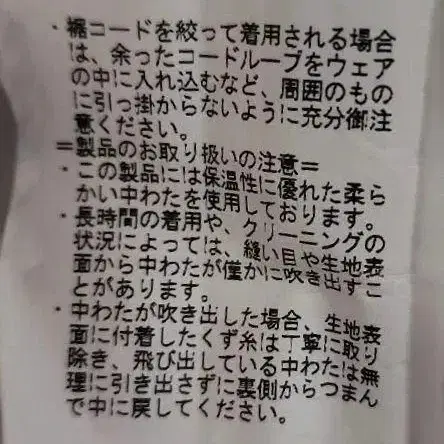 ・裾コードを絞って着用される場合
は、余ったコードループをウェア
の中に入れ込むなど、周囲のもの
に引っ掛からないように充分御注
意ください。
＝製品のお取り扱いの注意＝
・この製品には保温性に優れた柔ら
かい中わたを使用しております。
・長時間の着用や、クリーニングの
状況によっては、縫い目や生地表
面から中わたが僅かに吹き出すこ
とがあります。
・中わたが吹き出した場合、生地表
面に付着したくず糸は丁寧に取り
除き、飛び出している中わたは無
理に引き出さずに裏側からつまん
で中に戻してください。